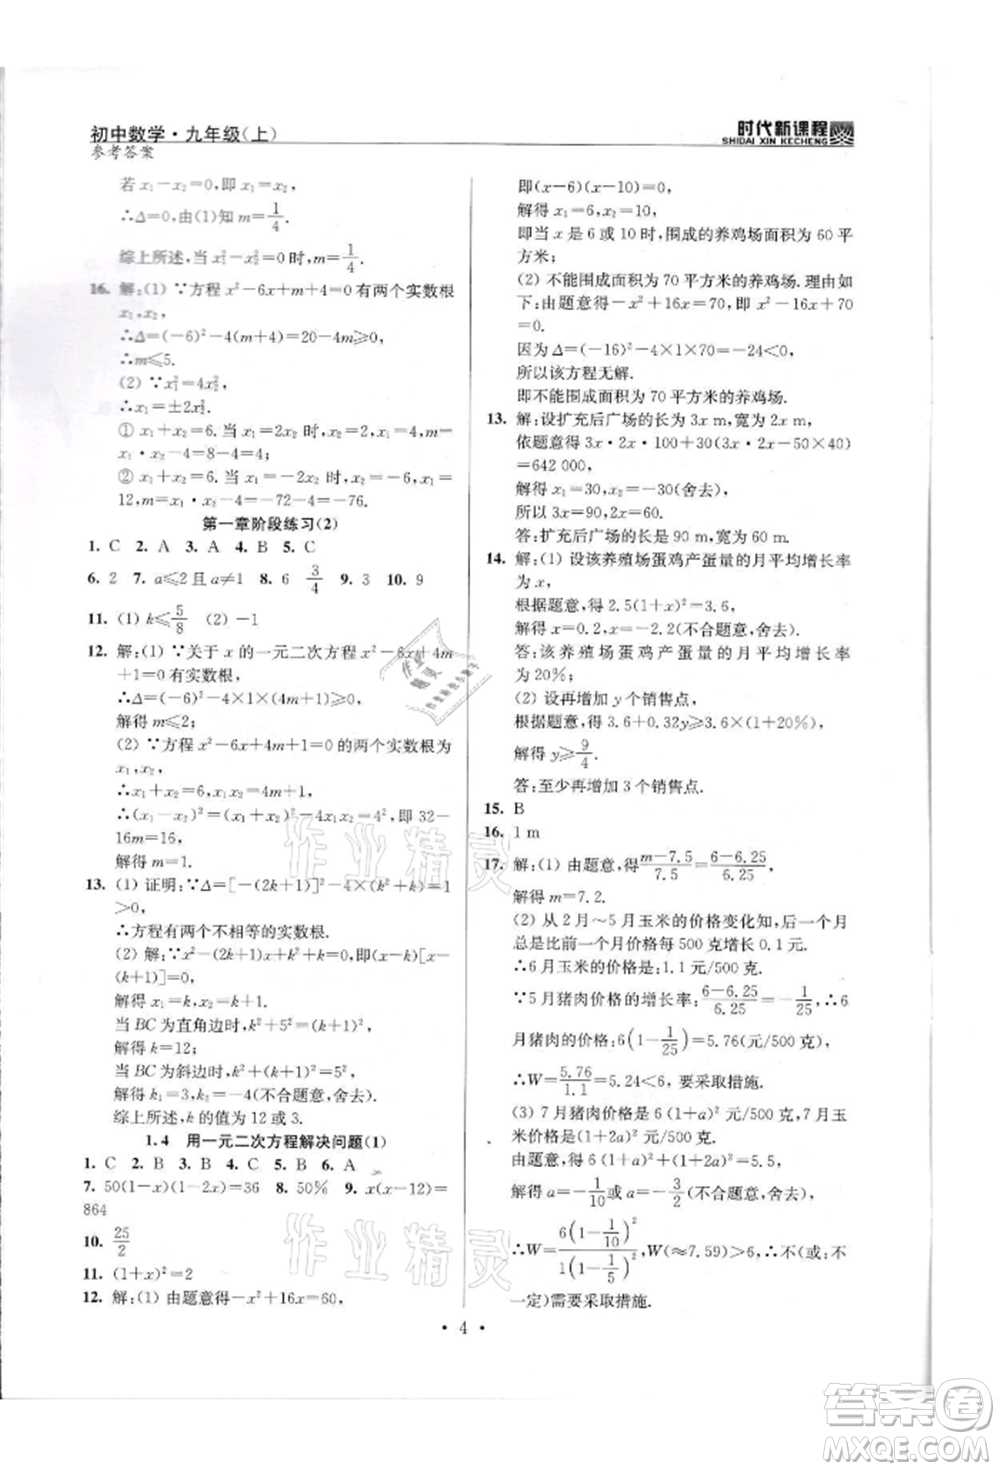 初中数学·九年级(上)
参考答案
时代新课程
SHIDAI XIN KECHENG
若 x₁－x₂＝0,即 x₁＝x₂,
∴Δ＝0,由(1)知 m＝1/4.
综上所述,当 x₁²－x₂²＝0 时,m＝1/4.
16. 解:(1) ∵方程 x²－6x＋m＋4＝0 有两个实数根
x₁,x₂,
∴Δ＝(－6)²－4(m＋4)＝20－4m⩾0,
∴m⩽5.
(2) ∵x₁²＝4x₂²,
∴x₁＝±2x₂.
① x₁＋x₂＝6. 当 x₁＝2x₂ 时,x₂＝2,x₁＝4,
∴m＝x₁·x₂－4＝8－4＝4;
② x₁＋x₂＝6. 当 x₁＝－2x₂ 时,x₂＝－6,x₁＝
12,∴m＝x₁·x₂－4＝－72－4＝－76.
第一章阶段练习(2)
1. C 2. A 3. A 4. B 5. C
6. 2 7. a⩽2且 a≠1 8. 6 3/4 9. 3 10. 9
11. (1) k⩽5/8 (2) －1
12. 解:(1) ∵关于 x 的一元二次方程 x²－6x＋4m
＋1＝0 有实数根,
∴Δ＝(－6)²－4×1×(4m＋1)⩾0,
解得 m⩽2;
(2) ∵方程 x²－6x＋4m＋1＝0 的两个实数根为
x₁,x₂,
∴x₁＋x₂＝6,x₁x₂＝4m＋1,
∴(x₁－x₂)²＝(x₁＋x₂)²－4x₁x₂＝4²,即 32－
16m＝16,
解得 m＝1.
13. (1) 证明:∵Δ＝[－(2k＋1)]²－4(k²＋k)＝1
＞0,
∴方程有两个不相等的实数根.
(2) 解:∵x²－(2k＋1)x＋k²＋k＝(x－k)[x－
(k＋1)]＝0,
解得 x₁＝k,x₂＝k＋1.
当 BC 为直角边时,k²＋5²＝(k＋1)²,
解得 k＝12;
当 BC 为斜边时,k²＋(k＋1)²＝5²,
解得 k₁＝3,k₂＝－4(不合题意,舍去).
综上所述,k 的值为 12 或 3.
1.4 用一元二次方程解决问题(1)
1. C 2. B 3. B 4. C 5. B 6. A
7. 50(1－x)(1－2x)＝36 8. 50% 9. x(x－12)＝
864
10. 25/2
11. (1＋x)²＝2
12. 解:(1) 由题意得－x²＋16x＝60,
即(x－6)(x－10)＝0,
解得 x₁＝6,x₂＝10,
即当 x 是 6 或 10 时,围成的养鸡场面积为 60 平
方米;
(2) 不能围成面积为 70 平方米的养鸡场.理由如
下:由题意得－x²＋16x＝70,即 x²－16x＋70
＝0.
因为 Δ＝(－16)²－4×1×70＝－24＜0,
所以该方程无解.
即不能围成面积为 70 平方米的养鸡场.
13. 解:设扩充后广场的长为 3x m,宽为 2x m,
依题意得 3x·2x·100＋30(3x·2x－50×40)
＝642 000,
解得 x₁＝30,x₂＝－30(舍去).
所以 3x＝90,2x＝60.
答:扩充后广场的长为 90 m,宽为 60 m.
14. 解:(1) 设该养殖场蛋鸡产蛋量的月平均增长率
为 x,
根据题意,得 2.5(1＋x)²＝3.6,
解得 x＝0.2,x＝－2.2(不合题意,舍去).
答:该养殖场蛋鸡产蛋量的月平均增长率
为 20%;
(2) 设再增加 y 个销售点,
根据题意,得 3.6＋0.32y⩾3.6×(1＋20%),
解得 y⩾9/4.
答:至少再增加 3 个销售点.
15. B
16. 1 m
17. 解:(1) 由题意,得(m－7.5)/7.5＝(6－6.25)/6.25,
解得 m＝7.2.
(2) 从 2 月～5 月玉米的价格变化知,后一个月
总是比前一个月价格每 500 克增长 0.1 元.
∴6 月玉米的价格是:1.1 元/500克.
∵5 月猪肉价格的增长率:(6－6.25)/6.25＝－1/25,∴6
月猪肉的价格:6(1－1/25)＝5.76(元/500克).
∴W＝5.76/1.1＝5.24＜6,要采取措施.
(3) 7 月猪肉价格是:6(1＋a)²元/500克,7 月
玉米价格是:5(1＋2a)²元/500克.
由题意,得 6(1＋a)²＋5(1＋2a)²＝5.5,
解得 a＝－1/10或 a＝－3/2(不合题意,舍去).
∴W＝6(1－1/10)²/5(1－1/5)²,W(≈7.59)＞6,∴不(或:不
一定)需要采取措施.
·4·
作业精灵
作业精灵
答案圈
MXQE.COM